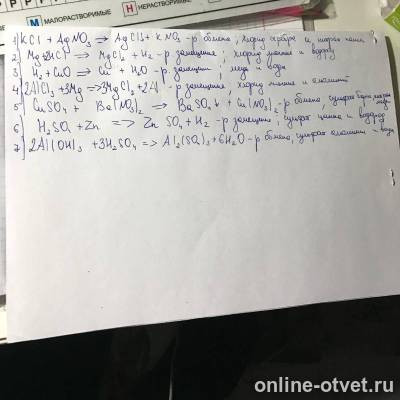 М МАЛОРАСТВОРИМЫЕ Н НЕРАСТВОРИМЫЕ
1) KCl + AgNO3 => AgCl↓ + KNO3 - р обмена, хлорид серебра и
2) Mg + 2HCl => MgCl2 + H2 - р замещение, хлорид магния и водород
3) H2 + CuO => Cu + H2O - р замещен, медь и вода
4) 2AlCl3 + 3Mg => 3MgCl2 + 2Al - р замещение, хлорид магния и алюминий
5) CuSO4 + Ba(NO3)2 => BaSO4↓ + Cu(NO3)2 - р обмена, сульфат бария
6) H2SO4 + Zn => ZnSO4 + H2 - р замещение, сульфат цинка и водород
7) 2Al(OH)3 + 3H2SO4 => Al2(SO4)3 + 6H2O - р обмена, сульфат алюминия и вода
online-otvet.ru